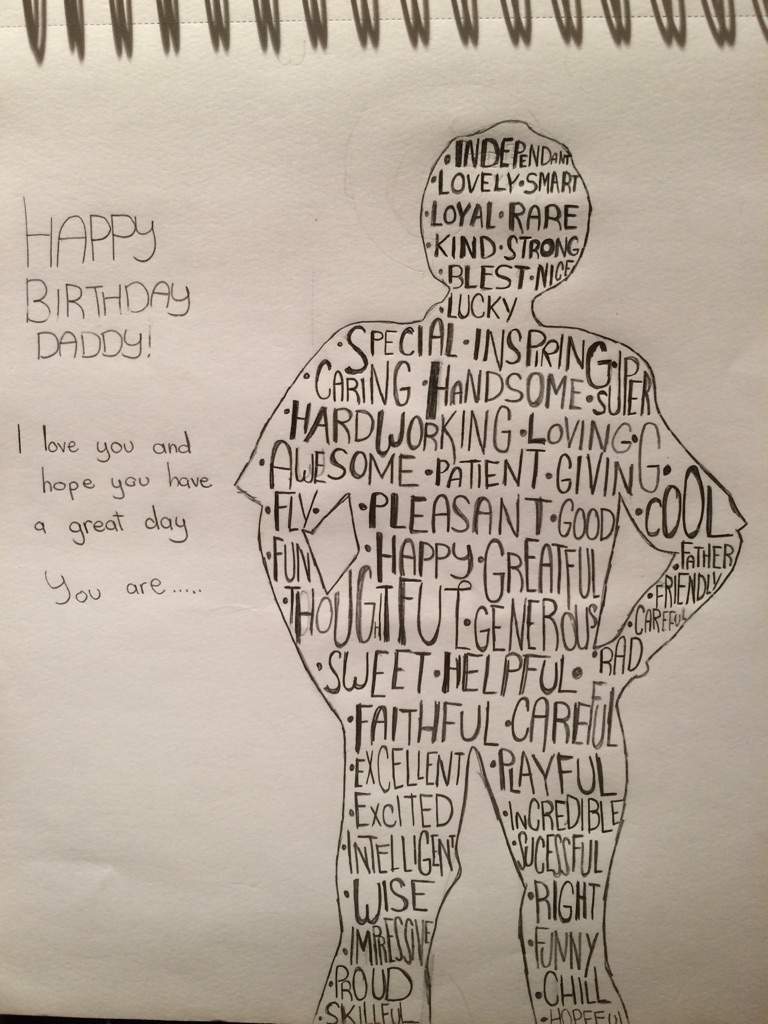 HAPPY
BIRTHDAY
DADDY!
I love you and
hope you have
a great day
You are.....
• INDEPENDANT
• LOVELY • SMART
• LOYAL • RARE
• KIND • STRONG
• BLEST • NICE
• LUCKY
• SPECIAL • INSPIRING
• CARING • HANDSOME • SUPER
• HARDWORKING • LOVING •
• AWESOME • PATIENT • GIVING • COOL
• FLY • • PLEASANT • GOOD
• FATHER
• FUN • HAPPY • GREATFUL
• FRIENDLY
• THOUGHTFUL • GENEROUS
• CAREFUL
• SWEET • HELPFUL • • RAD
• FAITHFUL • CAREFUL
• EXCELLENT • PLAYFUL
• EXCITED • INCREDIBLE
• INTELLIGENT • SUCESSFUL
• WISE • RIGHT
• IMPRESSIVE • FUNNY
• PROUD • CHILL
• SKILLFUL • HOPEFUL